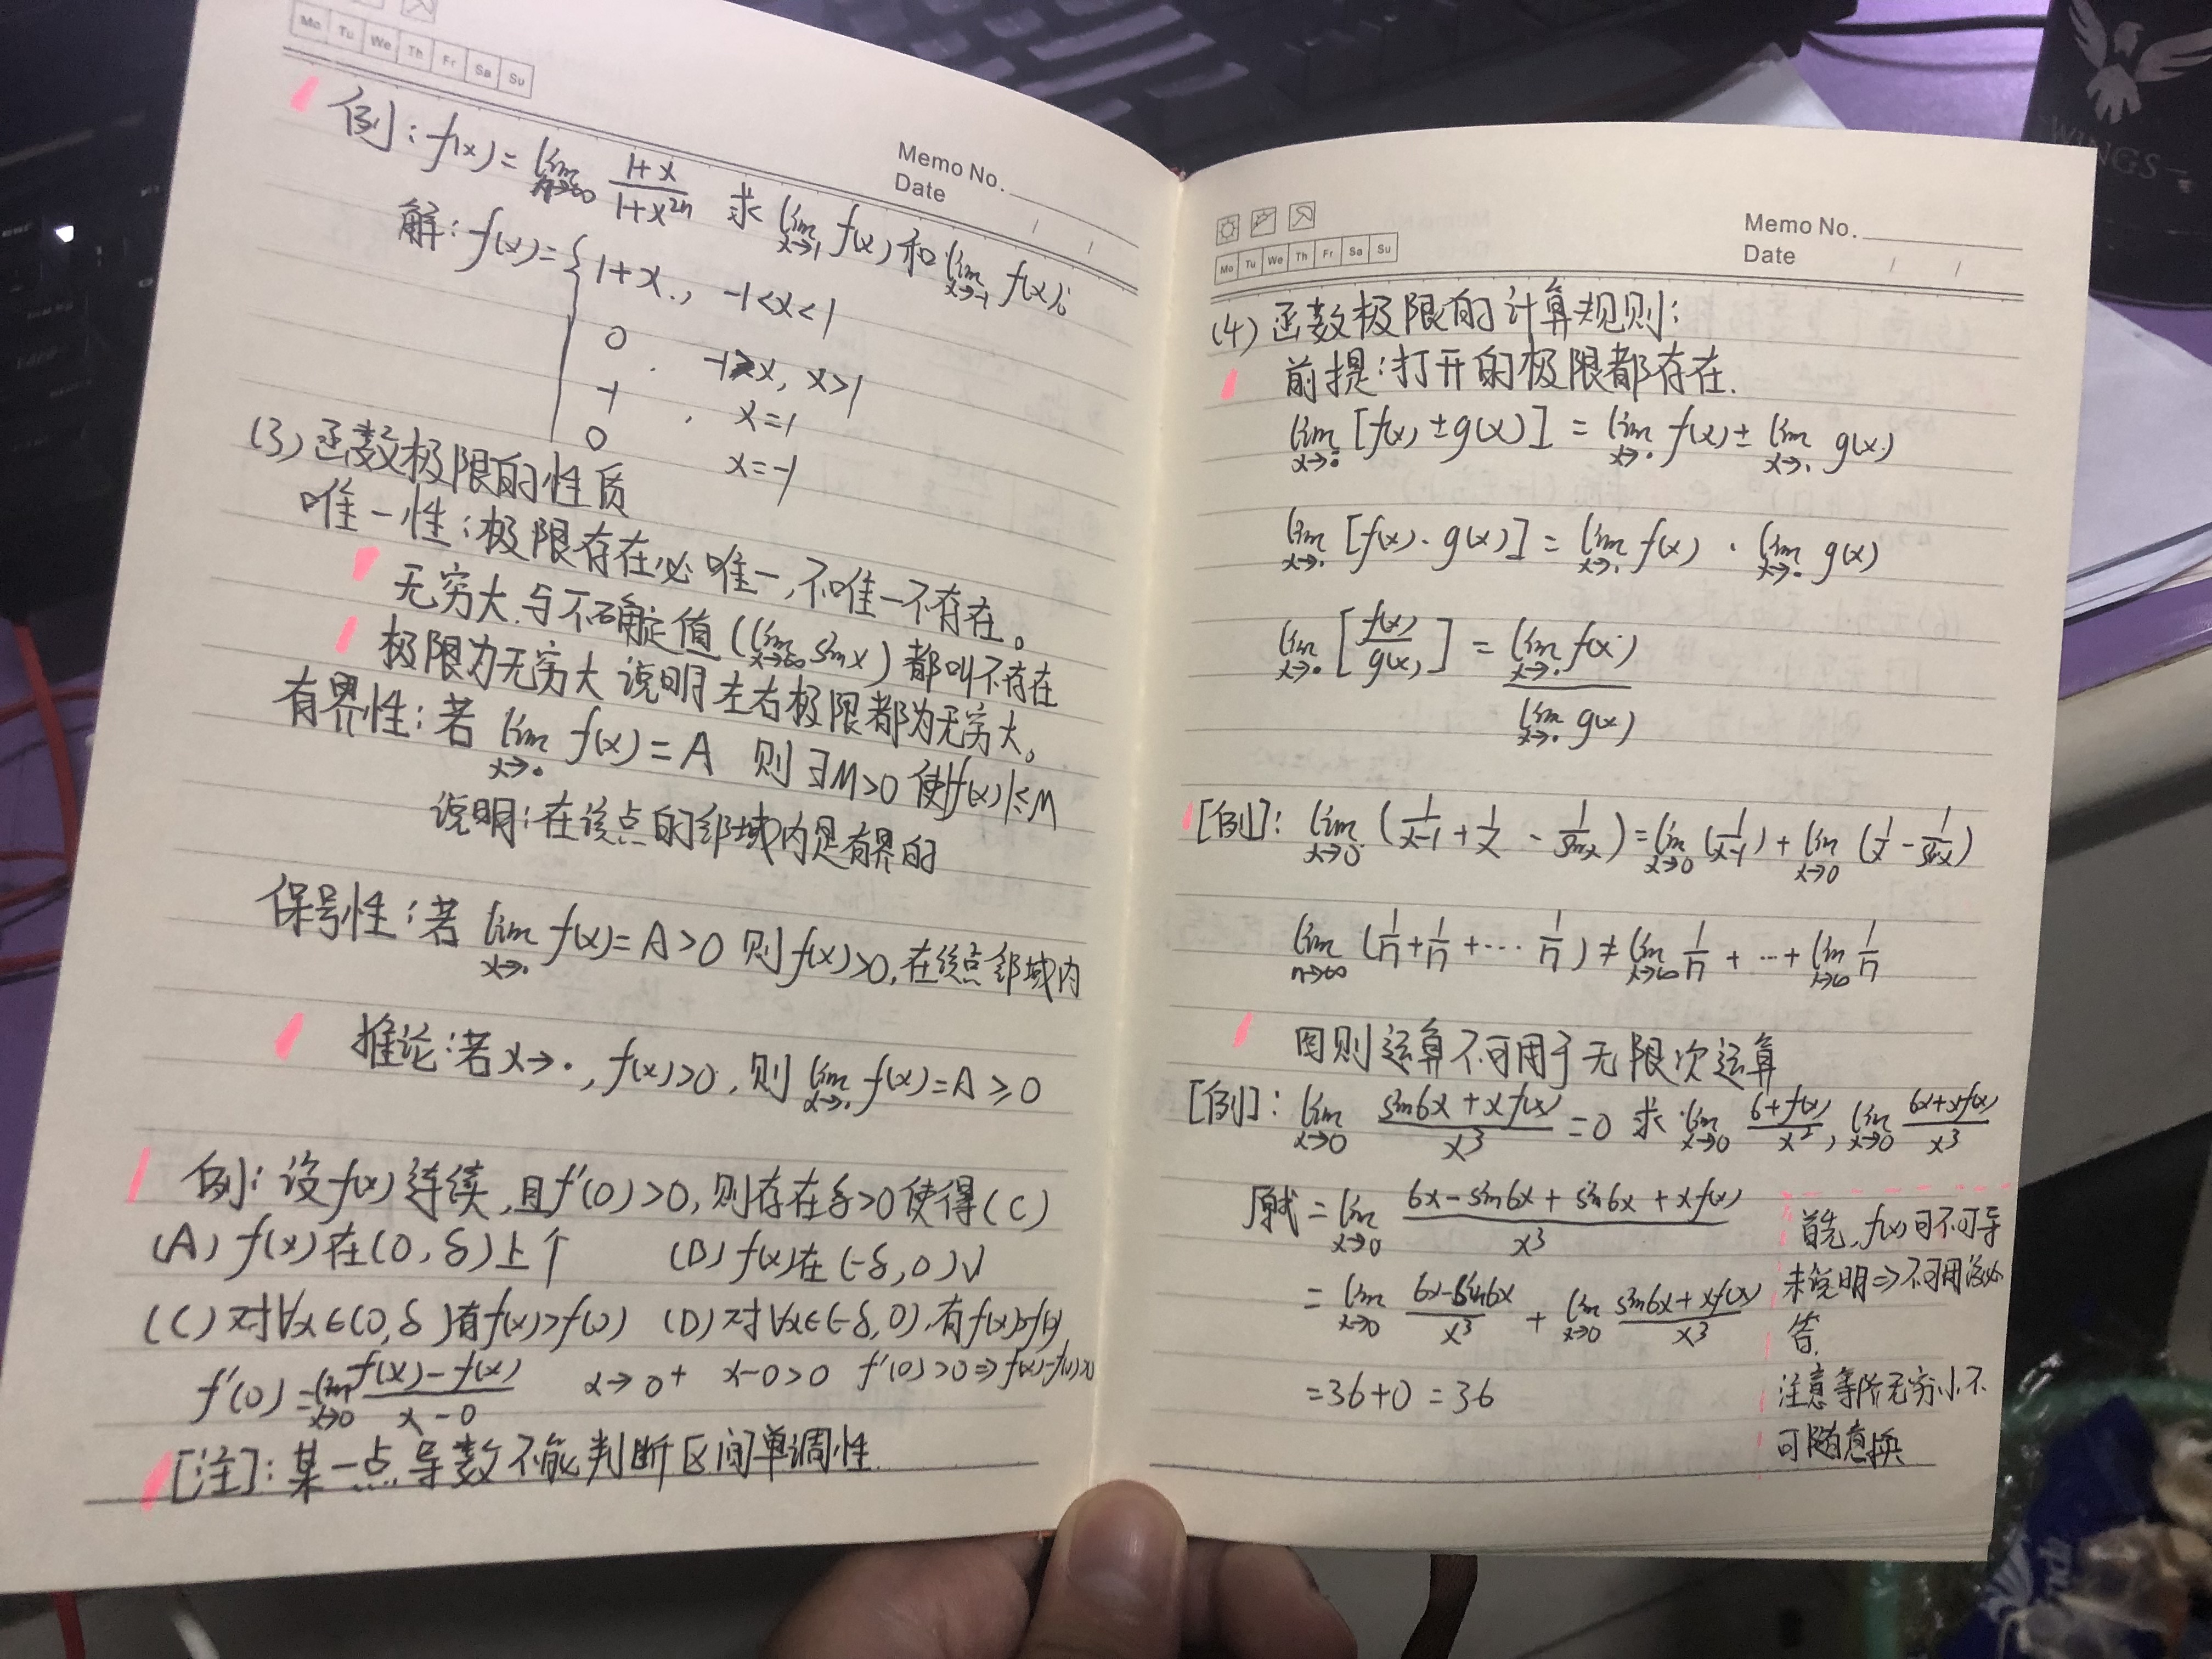 Mo Tu We Th Fr Sa Su
Memo No.
Date / /
例:f(x)=lim n→∞ (1+x)/(1+x²ⁿ) 求 lim x→1 f(x) 和 lim x→-1 f(x);
解:f(x)={ 1+x., -1<x<1
0 . -1>x, x>1
-1 . x=1
0 x=-1
(3)函数极限的性质
唯一性:极限存在必唯一,不唯一不存在。
无穷大与不确定值(lim x→∞ sinx)都叫不存在
极限为无穷大 说明左右极限都为无穷大。
有界性:若 lim x→• f(x)=A 则 ∃M>0 使|f(x)|≤M
说明:在该点的邻域内是有界的
保号性:若 lim x→• f(x)=A>0 则f(x)>0,在该点邻域内
推论:若x→•,f(x)>0,则 lim x→• f(x)=A≥0
例:设f(x)连续,且f'(0)>0,则存在δ>0使得(C)
(A)f(x)在(0,δ)上↑ (B)f(x)在(-δ,0)↓
(C)对∀x∈(0,δ)有f(x)>f(0) (D)对∀x∈(-δ,0),有f(x)>f(0)
f'(0)=lim x→0 (f(x)-f(x))/(x-0) x→0⁺ x-0>0 f'(0)>0⇒f(x)-f(0)>0
[注]:某一点导数不能判断区间单调性.
Mo Tu We Th Fr Sa Su
Memo No.
Date / /
(4)函数极限的计算规则:
前提:打开的极限都存在.
lim x→• [f(x)±g(x)] = lim x→• f(x) ± lim x→• g(x)
lim x→• [f(x)·g(x)] = lim x→• f(x) · lim x→• g(x)
lim x→• [f(x)/g(x)] = lim x→• f(x) / lim x→• g(x)
[例]:lim x→0 (1/(x-1) + 1/x - 1/sinx) = lim x→0 (1/(x-1)) + lim x→0 (1/x - 1/sinx)
lim n→∞ (1/n+1/n+⋯1/n) ≠ lim x→∞ 1/n + ⋯ + lim x→∞ 1/n
四则运算不可用于无限次运算
[例]:lim x→0 (sin6x+xf(x))/x³ =0 求 lim x→0 (6+f(x))/x², lim x→0 (6x+xf(x))/x³
原式 = lim x→0 (6x-sin6x+sin6x+xf(x))/x³
= lim x→0 (6x-sin6x)/x³ + lim x→0 (sin6x+xf(x))/x³
=36+0=36
首先,f(x)可不可导
未说明⇒不可用洛必
注意等价无穷小不
可随意换
WINGS